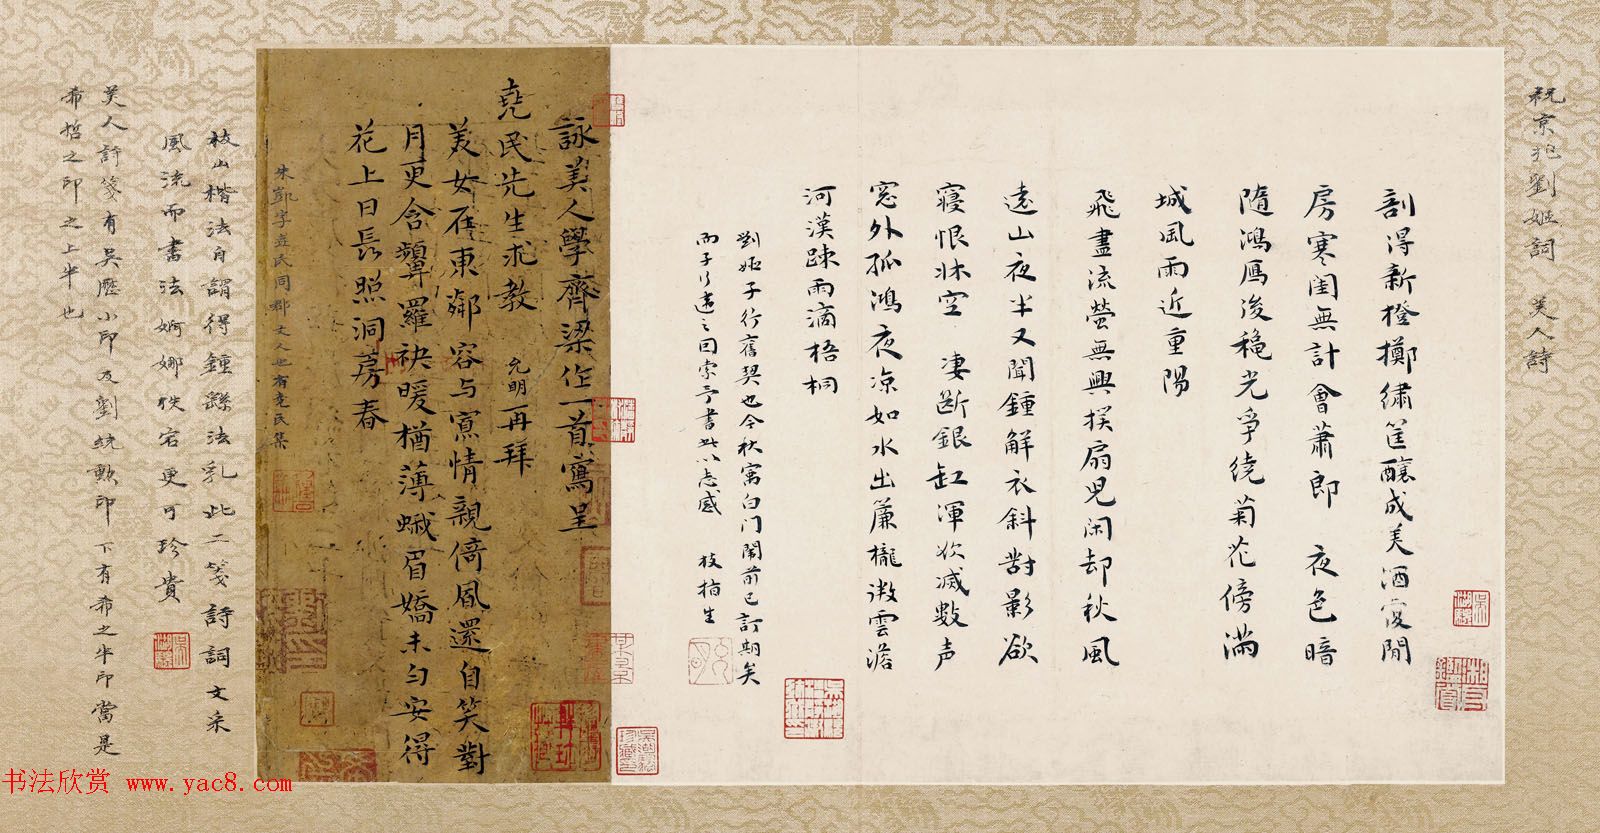 祝京兆劉姬詞 美人詩
剖得新橙擲繡筐釀成美酒復閒
房寒閨無計會蕭郎 夜色暗
隨鴻鴈後穐光爭繞菊花傍滿
城風雨近重陽
飛盡流螢無興撲扇兒閑却秋風
遠山夜半又聞鐘解衣斜對影欲
寢恨牀空 凄斷銀缸渾欲滅數声
窓外孤鴻夜凉如水出簾櫳微雲澹
河漢踈雨滴梧桐
劉姬子行舊契也今秋寓白门闈前已訂期矣
而子行遣之回索予書此以志感 枝指生
詠美人學齊梁作一首寫呈
堯民先生求教 允明再拜
美女在東鄰容与寫情親倚風還自笑對
月更含顰羅袂暖猶薄蛾眉嬌未勻安得
花上日長照洞房春
朱凱字堯民同郡文人也有堯民集
枝山楷法自謂得鍾繇法乳此二箋詩詞文采
風流而書法婀娜佚宕更可珍貴
美人詩箋有吳歷小印及劉統勲印下有希之半印當是
希哲之印之上半也
书法欣赏 www.yac8.com